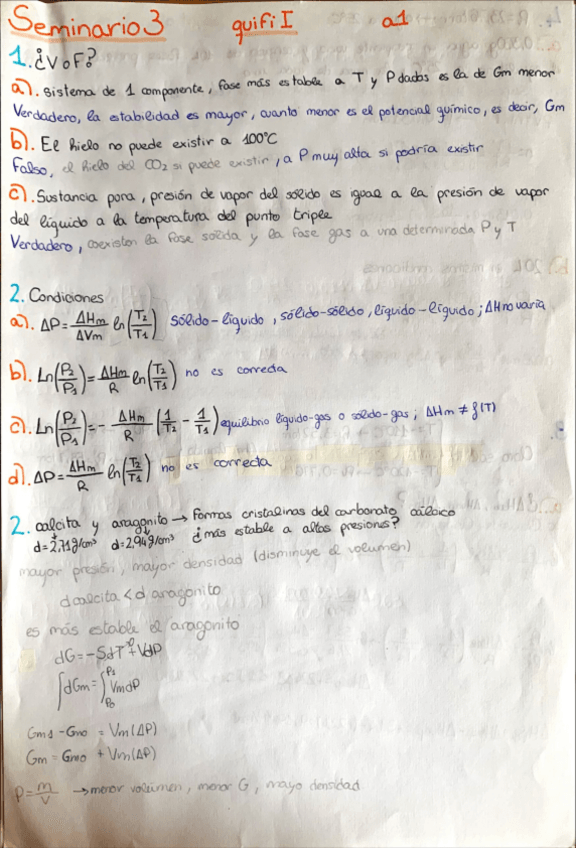 Seminario 3 quifi I a1
1. ¿V o F?
a). Sistema de 1 componente, fase más estable a T y P dados es la de Gm menor
Verdadero, la estabilidad es mayor, cuanto menor es el potencial químico, es decir, Gm
b). El hielo no puede existir a 100°C
Falso, el hielo del CO2 si puede existir, a P muy alta si podría existir
c). Sustancia pura, presión de vapor del sólido es igual a la presión de vapor
del líquido a la temperatura del punto triple
Verdadero, coexisten la fase solida y la fase gas a una determinada P y T
2. Condiciones
a). ΔP = ΔHm/ΔVm ln(T2/T1) Sólido-líquido, sólido-sólido, líquido-líquido; ΔH no varia
b). Ln(P2/P1) = ΔHm/R ln(T2/T1) no es correcta
c). Ln(P2/P1) = - ΔHm/R (1/T2 - 1/T1) equilibrio líquido-gas o sólido-gas; ΔHm ≠ f(T)
d). ΔP = ΔHm/R ln(T2/T1) no es correcta
2. calcita y aragonito → formas cristalinas del carbonato cálcico
d=2,71g/cm³ d=2,94g/cm³ ¿más estable a altas presiones?
mayor presión, mayor densidad (disminuye el volumen)
d calcita < d aragonito
es más estable el aragonito
dG = -SdT + VdP
∫dGm = ∫ Vm dP
Gm1 - Gm0 = Vm(ΔP)
Gm = Gm0 + Vm(ΔP)
P = m/V → menor volumen, menor G, mayo densidad